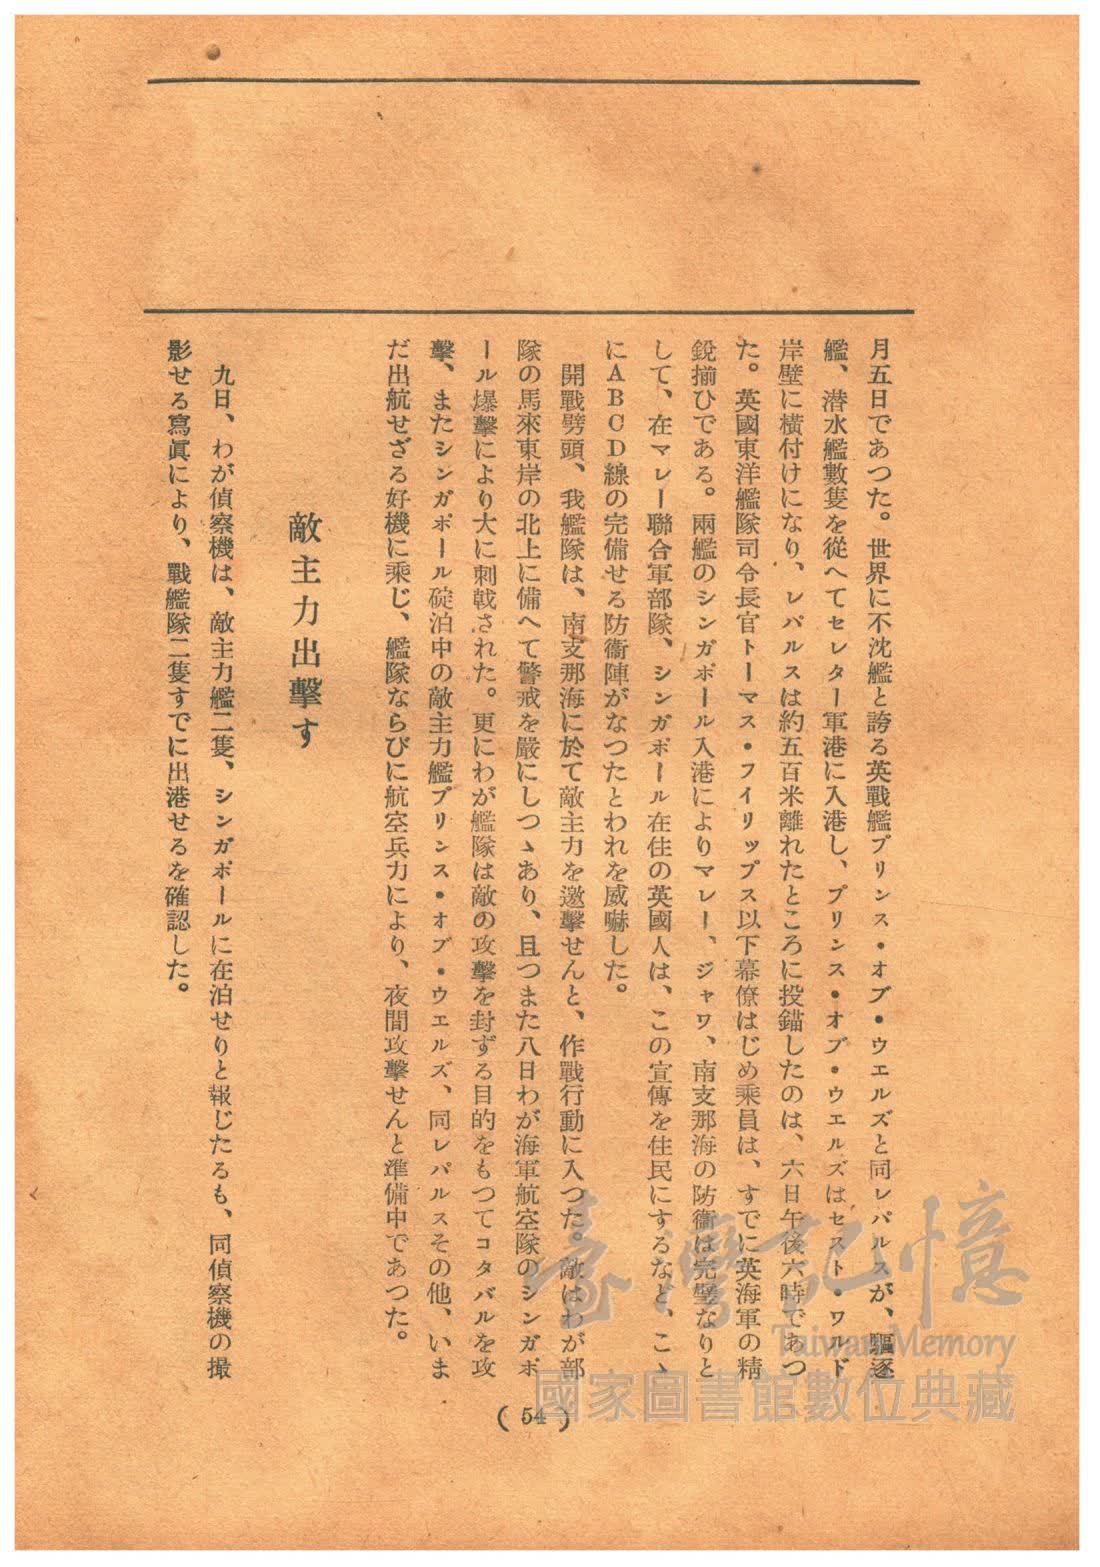 月五日であつた。世界に不沈艦と誇る英戰艦プリンス・オブ・ウエルズと同レパルスが、驅逐
艦、潜水艦數隻を從へてセレター軍港に入港し、プリンス・オブ・ウエルズはセスト・ワルド
岸壁に横付けになり、レパルスは約五百米離れたところに投錨したのは、六日午後六時であつ
た。英國東洋艦隊司令長官トーマス・フイリップス以下幕僚はじめ乘員は、すでに英海軍の精
鋭揃ひである。兩艦のシンガポール入港によりマレー、ジャワ、南支那海の防衞は完璧なりと
して、在マレー聯合軍部隊、シンガポール在住の英國人は、この宣傳を住民にするなど、こゝ
にABCD線の完備せる防衞陣がなつたとわれを威嚇した。
開戰劈頭、我艦隊は、南支那海に於て敵主力を邀擊せんと、作戰行動に入つた。敵はわが部
隊の馬來東岸の北上に備へて警戒を嚴にしつゝあり、且つまた八日わが海軍航空隊のシンガポ
ール爆擊により大に刺戟された。更にわが艦隊は敵の攻擊を封ずる目的をもつてコタバルを攻
擊、またシンガポール碇泊中の敵主力艦プリンス・オブ・ウエルズ、同レパルスその他、いま
だ出航せざる好機に乘じ、艦隊ならびに航空兵力により、夜間攻擊せんと準備中であつた。
敵主力出擊す
九日、わが偵察機は、敵主力艦二隻、シンガポールに在泊せりと報じたるも、同偵察機の撮
影せる寫眞により、戰艦隊二隻すでに出港せるを確認した。
(54)
臺灣記憶
Taiwan Memory
國家圖書館數位典藏